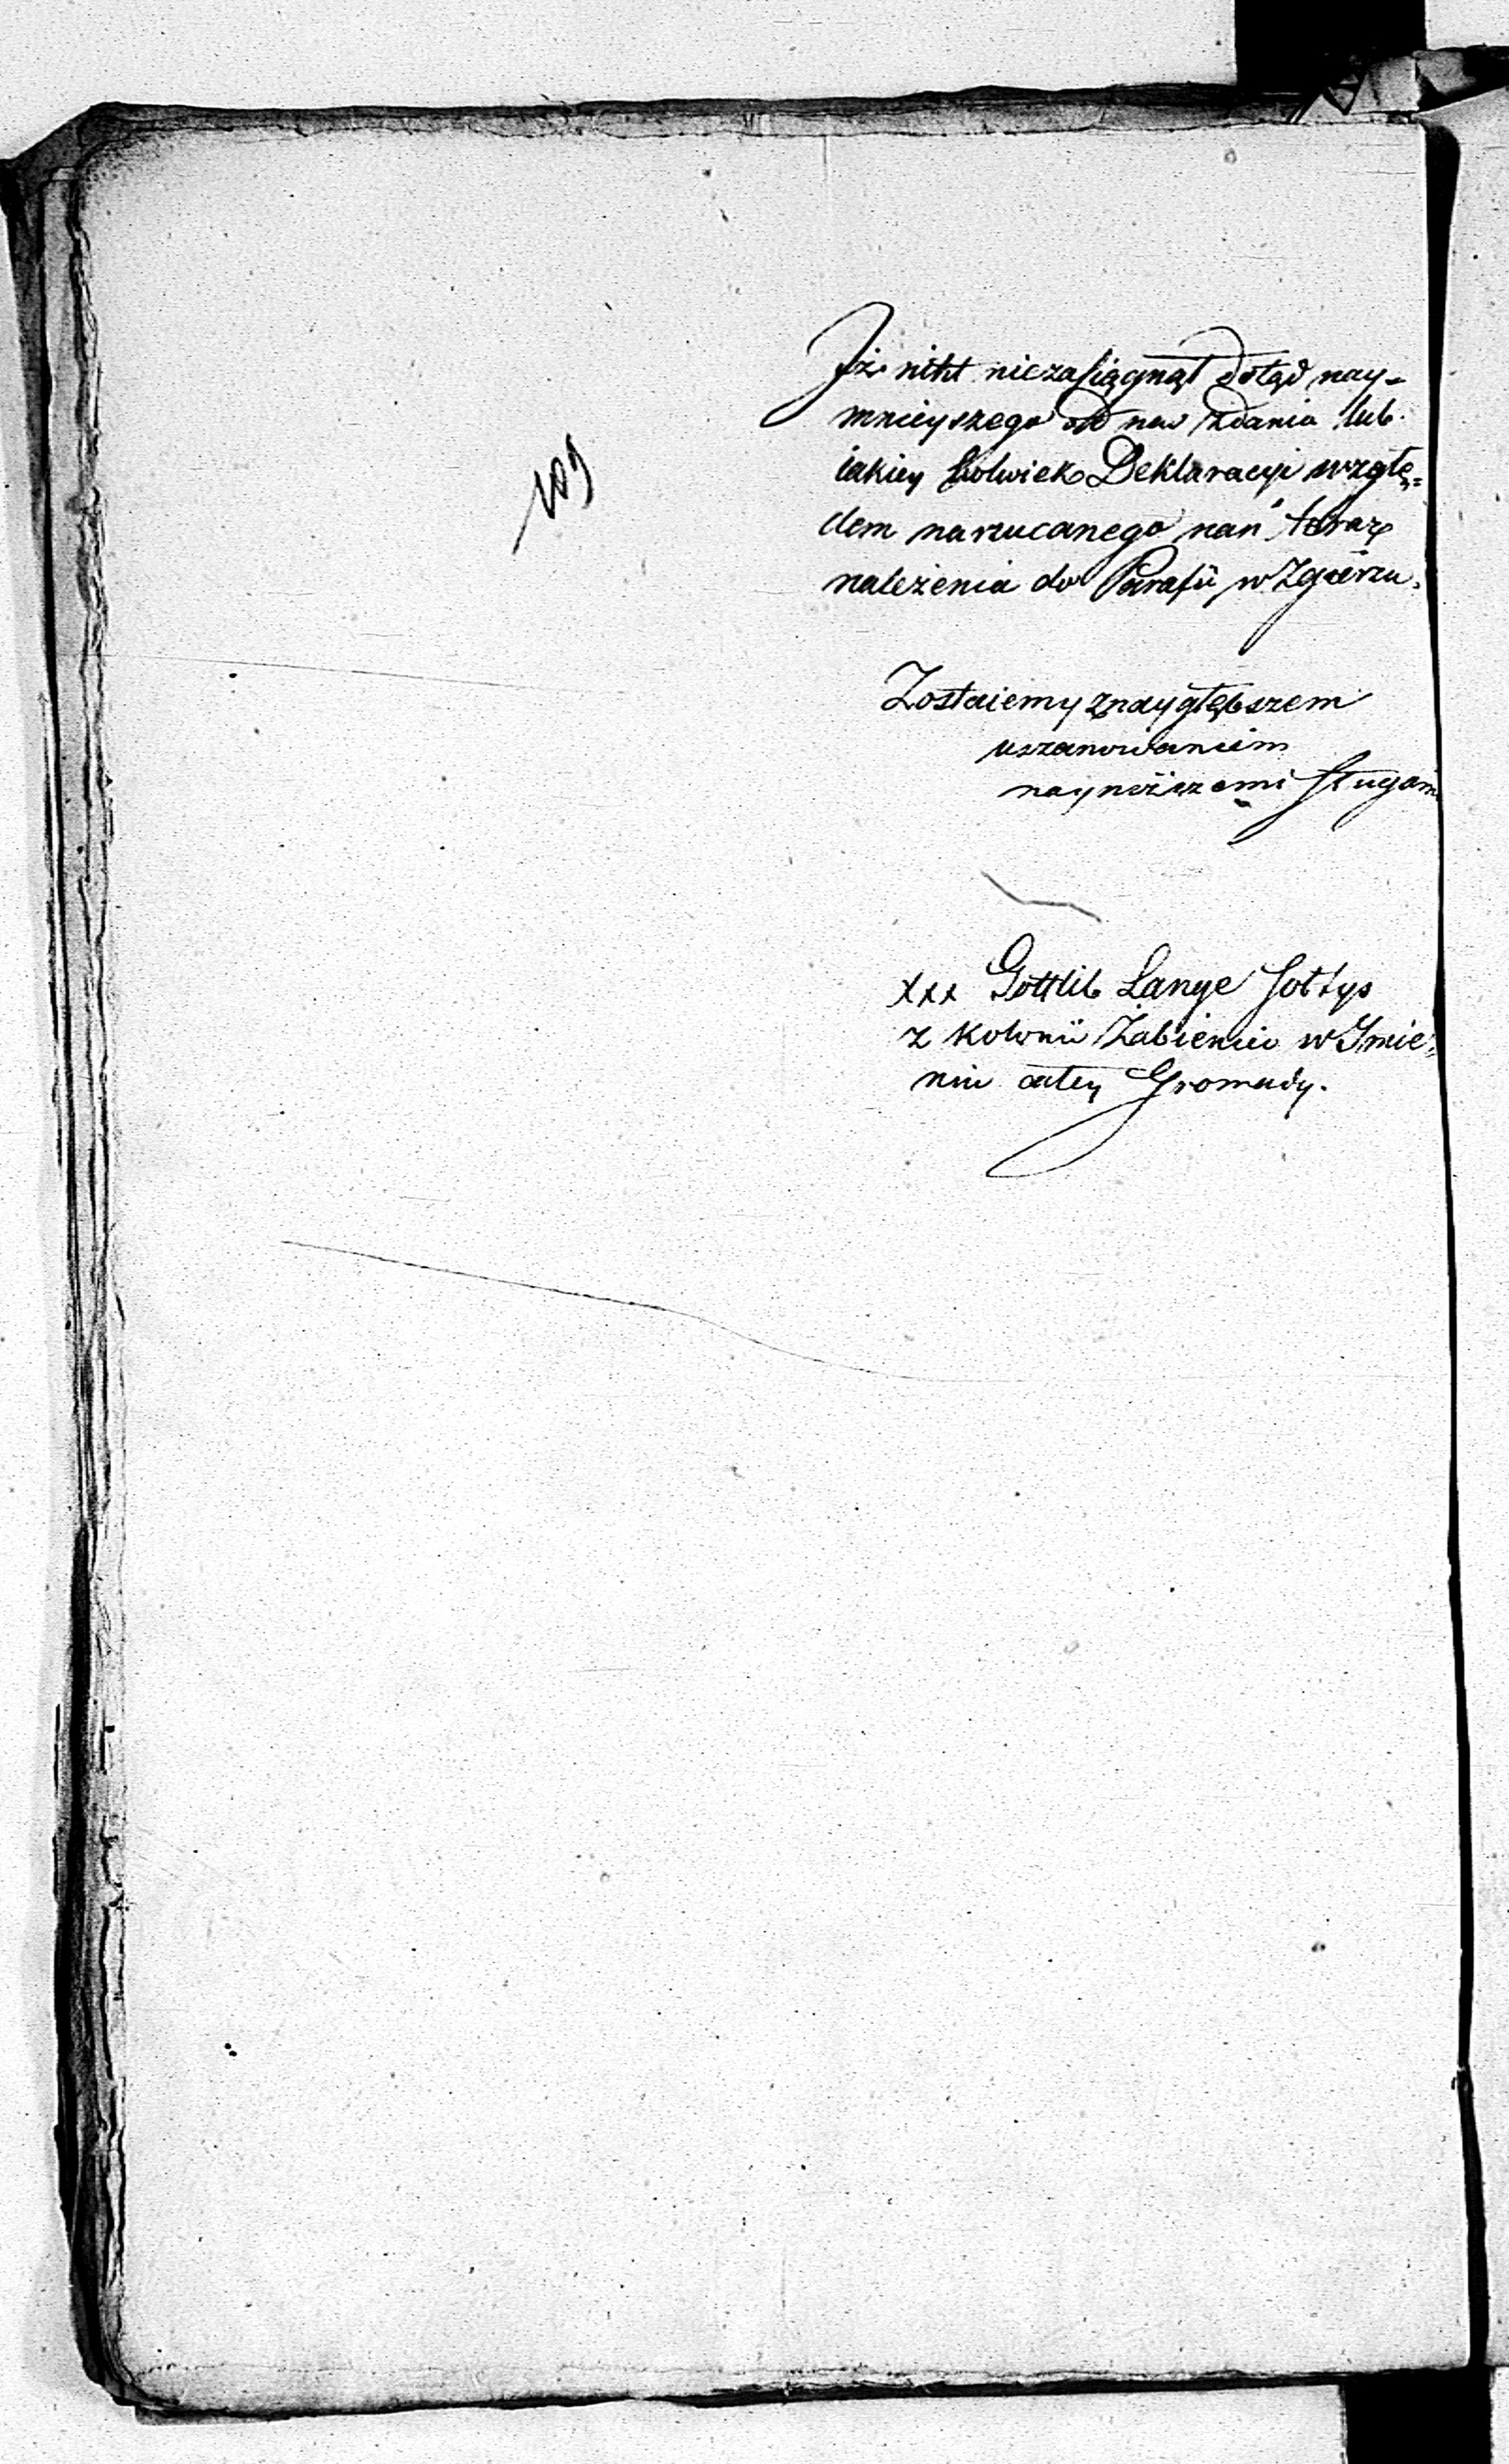 109
Iż nikt niezasiągnął dotąd nay-
mnieyszego od nas zdania lub
iakiey kolwiek Deklaracyi wzglę=
dem narzucanego nań teraz
należenia do Parafii w Zgierzu.
Zostaiemy z naygłębszem
uszanowaniem
nayniższemi sługami
xxx Gottlib Lange Sołtys
z kolonii Żabieniec w Imie=
niu całey Gromady.